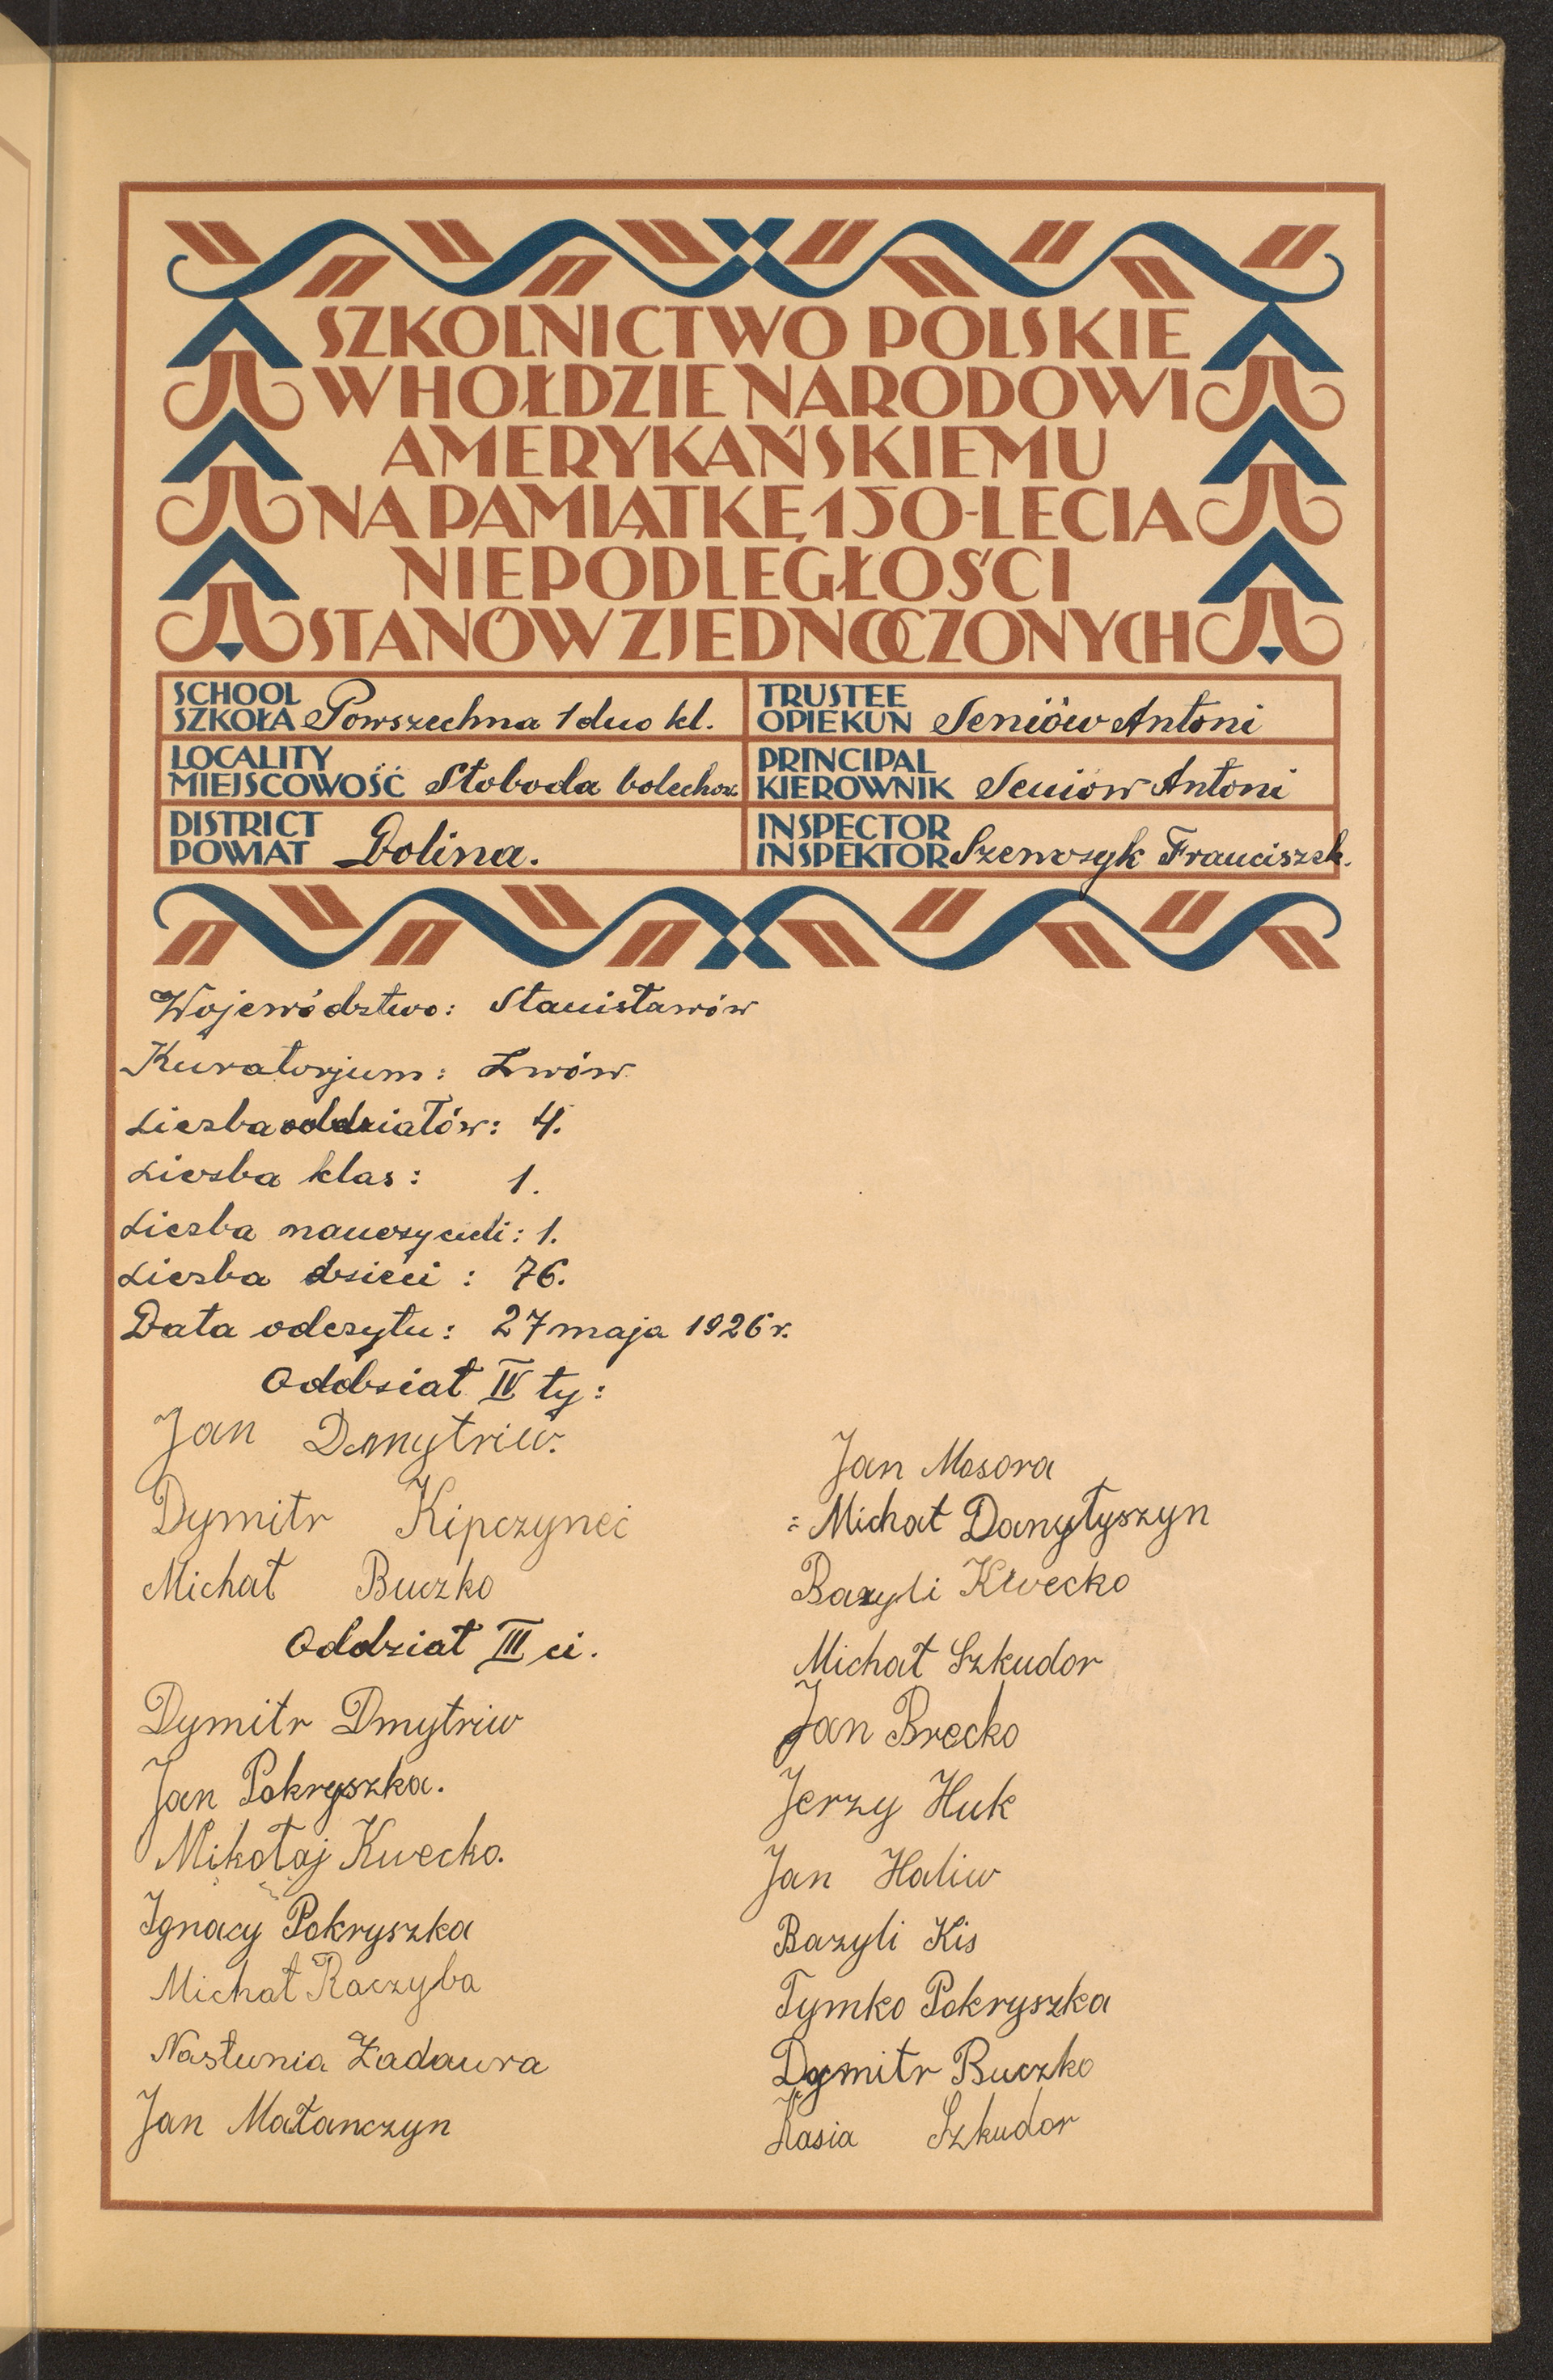 SZKOLNICTWO POLSKIE
W HOŁDZIE NARODOWI
AMERYKAŃSKIEMU
NA PAMIĄTKĘ 150-LECIA
NIEPODLEGŁOŚCI
STANÓW ZJEDNOCZONYCH
SCHOOL
SZKOŁA Powszechna 1 duo kl.
TRUSTEE
OPIEKUN Seniów Antoni
LOCALITY
MIEJSCOWOŚĆ Słoboda bolechow.
PRINCIPAL
KIEROWNIK Seniów Antoni
DISTRICT
POWIAT Dolina.
INSPECTOR
INSPEKTOR Szewczyk Franciszek.
Województwo: Stanisławów
Kuratorjum: Lwów
Liczba oddziałów: 4.
Liczba klas: 1.
Liczba nauczycieli: 1.
Liczba dzieci: 76.
Data odczytu: 27 maja 1926 r.
Oddział IV ty:
Jan Dmytriw.
Dymitr Kipczyneć
Michał Buczko
Oddział III ci.
Dymitr Dmytriw
Jan Pokryszka.
Mikołaj Kwecko.
Ignacy Pokryszka
Michał Raczyba
Nastunia Zadawra
Jan Małanczyn
Jan Mosora
Michał Danyłyszyn
Bazyli Kwecko
Michał Szkudor
Jan Brecko
Jerzy Huk
Jan Haliw
Bazyli Kis
Tymko Pokryszka
Dymitr Buczko
Kasia Szkudor